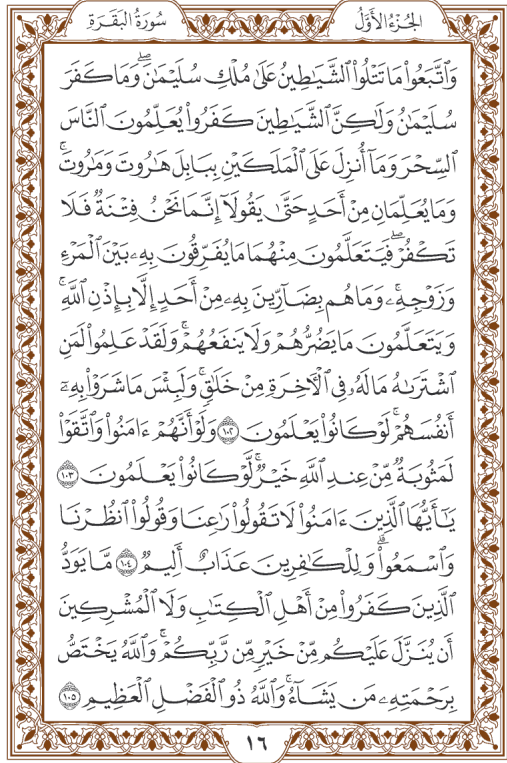 الجُزْءُ الأَوَّلُ
سُورَةُ البَقَرَةِ
وَٱتَّبَعُوا۟ مَا تَتْلُوا۟ ٱلشَّيَٰطِينُ عَلَىٰ مُلْكِ سُلَيْمَٰنَۖ وَمَا كَفَرَ
سُلَيْمَٰنُ وَلَٰكِنَّ ٱلشَّيَٰطِينَ كَفَرُوا۟ يُعَلِّمُونَ ٱلنَّاسَ
ٱلسِّحْرَ وَمَآ أُنزِلَ عَلَى ٱلْمَلَكَيْنِ بِبَابِلَ هَٰرُوتَ وَمَٰرُوتَۚ
وَمَا يُعَلِّمَانِ مِنْ أَحَدٍ حَتَّىٰ يَقُولَآ إِنَّمَا نَحْنُ فِتْنَةٌ فَلَا
تَكْفُرْۖ فَيَتَعَلَّمُونَ مِنْهُمَا مَا يُفَرِّقُونَ بِهِۦ بَيْنَ ٱلْمَرْءِ
وَزَوْجِهِۦۚ وَمَا هُم بِضَآرِّينَ بِهِۦ مِنْ أَحَدٍ إِلَّا بِإِذْنِ ٱللَّهِۚ
وَيَتَعَلَّمُونَ مَا يَضُرُّهُمْ وَلَا يَنفَعُهُمْۚ وَلَقَدْ عَلِمُوا۟ لَمَنِ
ٱشْتَرَىٰهُ مَا لَهُۥ فِى ٱلْءَاخِرَةِ مِنْ خَلَٰقٍۚ وَلَبِئْسَ مَا شَرَوْا۟ بِهِۦٓ
أَنفُسَهُمْۚ لَوْ كَانُوا۟ يَعْلَمُونَ ١٠٢ وَلَوْ أَنَّهُمْ ءَامَنُوا۟ وَٱتَّقَوْا۟
لَمَثُوبَةٌ مِّنْ عِندِ ٱللَّهِ خَيْرٌۚ لَّوْ كَانُوا۟ يَعْلَمُونَ ١٠٣
يَٰٓأَيُّهَا ٱلَّذِينَ ءَامَنُوا۟ لَا تَقُولُوا۟ رَٰعِنَا وَقُولُوا۟ ٱنظُرْنَا
وَٱسْمَعُوا۟ۗ وَلِلْكَٰفِرِينَ عَذَابٌ أَلِيمٌ ١٠٤ مَّا يَوَدُّ
ٱلَّذِينَ كَفَرُوا۟ مِنْ أَهْلِ ٱلْكِتَٰبِ وَلَا ٱلْمُشْرِكِينَ
أَن يُنَزَّلَ عَلَيْكُم مِّنْ خَيْرٍ مِّن رَّبِّكُمْۗ وَٱللَّهُ يَخْتَصُّ
بِرَحْمَتِهِۦ مَن يَشَآءُۚ وَٱللَّهُ ذُو ٱلْفَضْلِ ٱلْعَظِيمِ ١٠٥
١٦